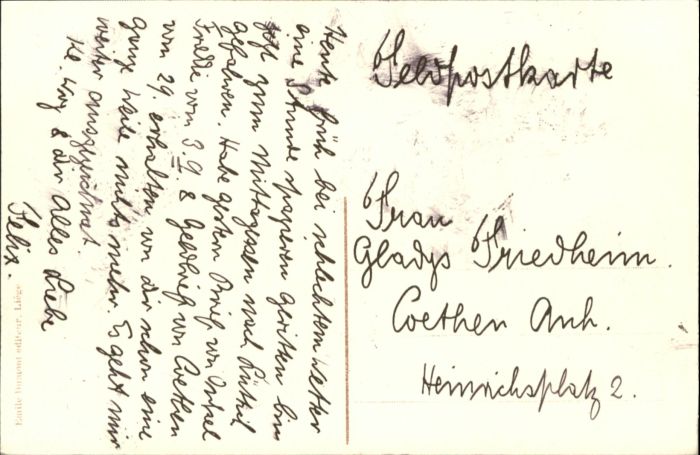 Feldpostkarte
Frau
Gladys Friedheim.
Coethen Anh.
Heinrichsplatz 2.
Heute früh bei schlechtem Wetter
eine Stunde spazieren geritten bin
jetzt zum Mittagessen nach Lüttich
gefahren. Habe gestern Brief von Onkel
Friede vom 3.9 & Geldbrief von Coethen
vom 29. erhalten von dir schon eine
ganze Weile nichts mehr. Es geht mir
weiter ausgezeichnet.
& dir alles Liebe
Felix.
Emile Dumont editeur, Liége